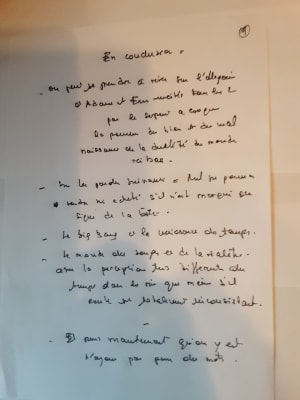 En conclusion =
- on peut se prendre à rêver sur l'allégorie
d'Adam et Eve invités tous les 2
par le serpent à croquer
la pomme du bien et du mal
naissance de la dualité du monde
- Sur les paroles suivantes = Nul ne pourra
vendre ni acheter s'il n'est marqué du
signe de la bête.
- Le big bang et la naissance du temps.
- Le monde du temps et de la réalité.
avec la perception très différente du
temps dans le rêve que même s'il
existe est totalement inconsistant.
-
- Et puis maintenant qu'on y est
n'ayons pas peur des mots.